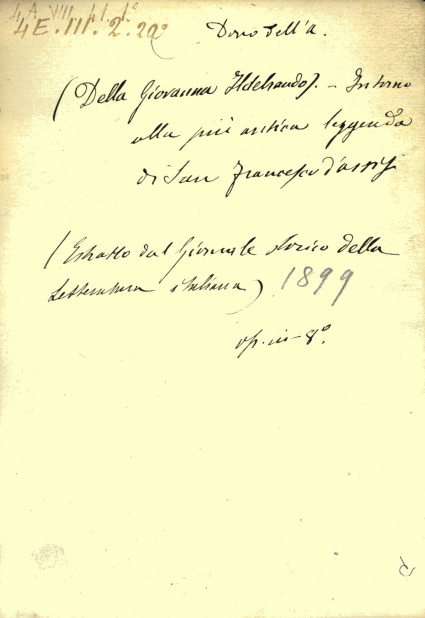 4 A VII. 41. 1º
4E.III.2.20º
Dono dell'A.
(Della Giovanna Ildebrando). - Intorno
alla più antica leggenda
di San Francesco d'Assisi
(Estratto dal Giornale storico della
Letteratura italiana) 1899
op. in-8º.